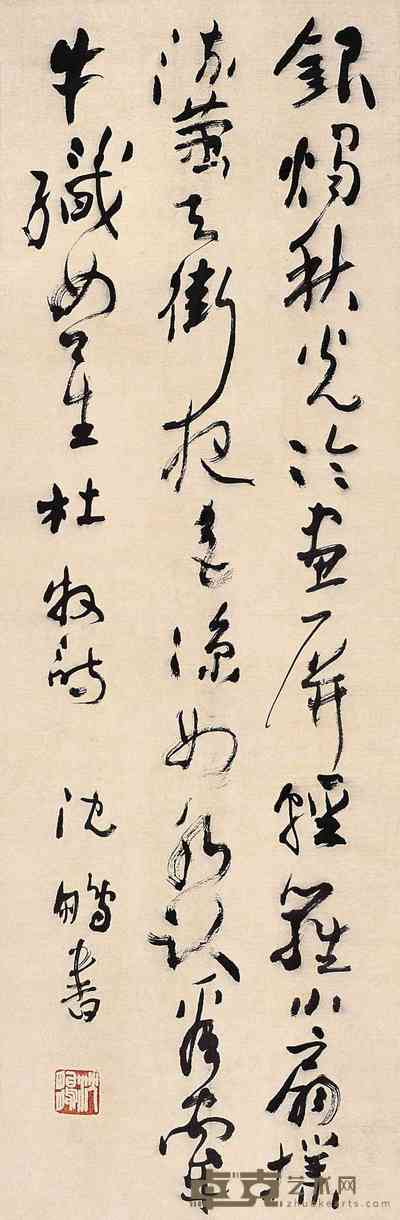 銀燭秋光冷畫屏輕羅小扇撲
流螢天街夜色涼如水臥看牽
牛織女星 杜牧詩 沈鵬書
沈鵬
卓克艺术网
zhuokearts.com